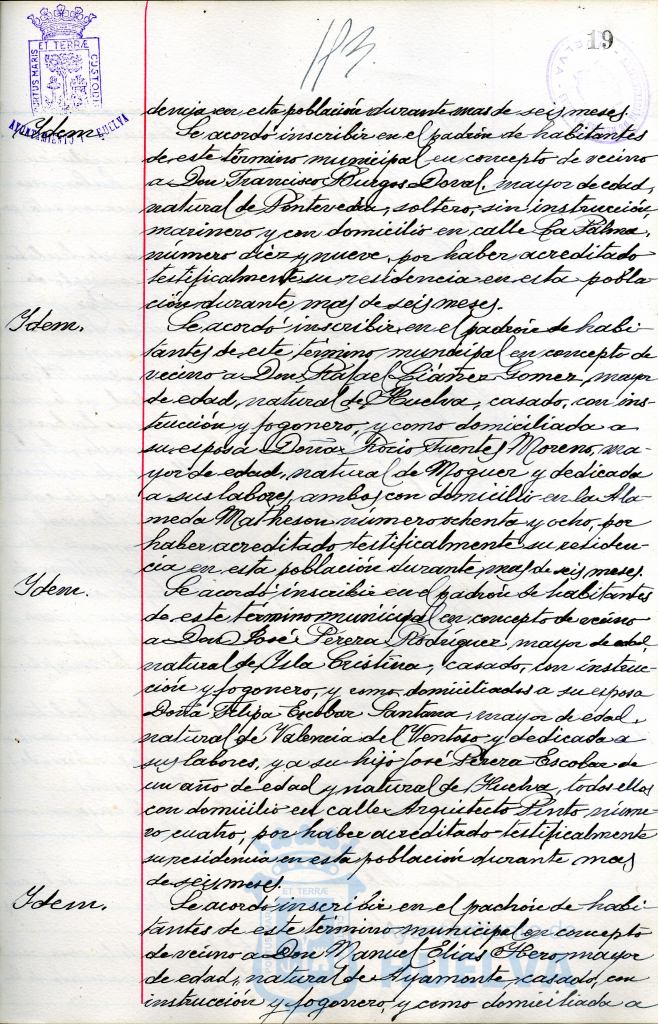 19
113.
ET TERRÆ
PORTUS MARIS
CUSTODIA
AYUNTAMIENTO DE HUELVA
dencia en esta población durante mas de seis meses.
Idem. Se acordó inscribir en el padrón de habitantes
de este término municipal en concepto de vecino
a Don Francisco Burgos Doval, mayor de edad,
natural de Pontevedra, soltero, sin instrucción,
marinero, y con domicilio en calle La Palma,
número diez y nueve, por haber acreditado
testificalmente su residencia en esta pobla
ción durante mas de seis meses.
Idem. Se acordó inscribir en el padrón de habi-
tantes de este término municipal en concepto de
vecino a Don Rafael Liáñez Gomez, mayor
de edad, natural de Huelva, casado, con ins-
trucción y fogonero, y como domiciliada a
su esposa Doña Rocio Fuentes Moreno, ma-
yor de edad, natural de Moguer y dedicada
a sus labores, ambos con domicilio en la Ala-
meda Matheson número ochenta y ocho, por
haber acreditado testificalmente su residen-
cia en esta población durante mas de seis meses.
Idem. Se acordó inscribir en el padrón de habitantes
de este término municipal en concepto de vecino
a Don José Perera Rodríguez mayor de edad,
natural de Isla Cristina, casado, con instruc-
ción y fogonero, y como domiciliados a su esposa
Doña Felipa Escobar Santana, mayor de edad,
natural de Valencia del Ventoso y dedicada a
sus labores, y a su hijo José Perera Escobar de
un año de edad y natural de Huelva, todos ellos
con domicilio en calle Arquitecto Pinto, núme-
ro cuatro, por haber acreditado testificalmente
su residencia en esta población durante mas
de seis meses.
Idem. Se acordó inscribir en el padrón de habi-
tantes de este término municipal en concepto
de vecino a Don Manuel Elías Hero, mayor
de edad, natural de Ayamonte, casado, con
instrucción y fogonero, y como domiciliada a
ET TERRÆ
HUELVA